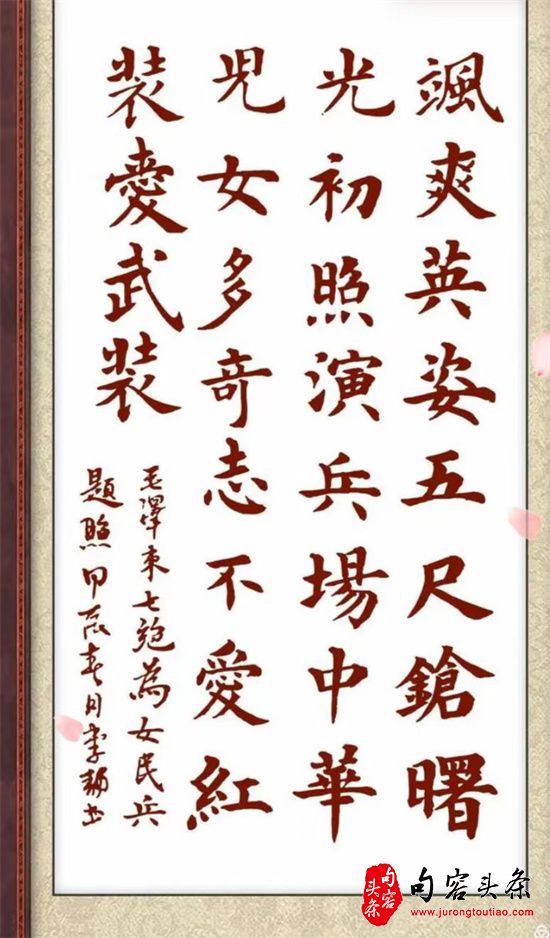 颯爽英姿五尺鎗曙
光初照演兵場中華
兒女多奇志不愛紅
裝愛武裝
毛澤東七絕為女民兵
題照甲辰春月李書
句容头条
句容头条
www.jurongtoutiao.com